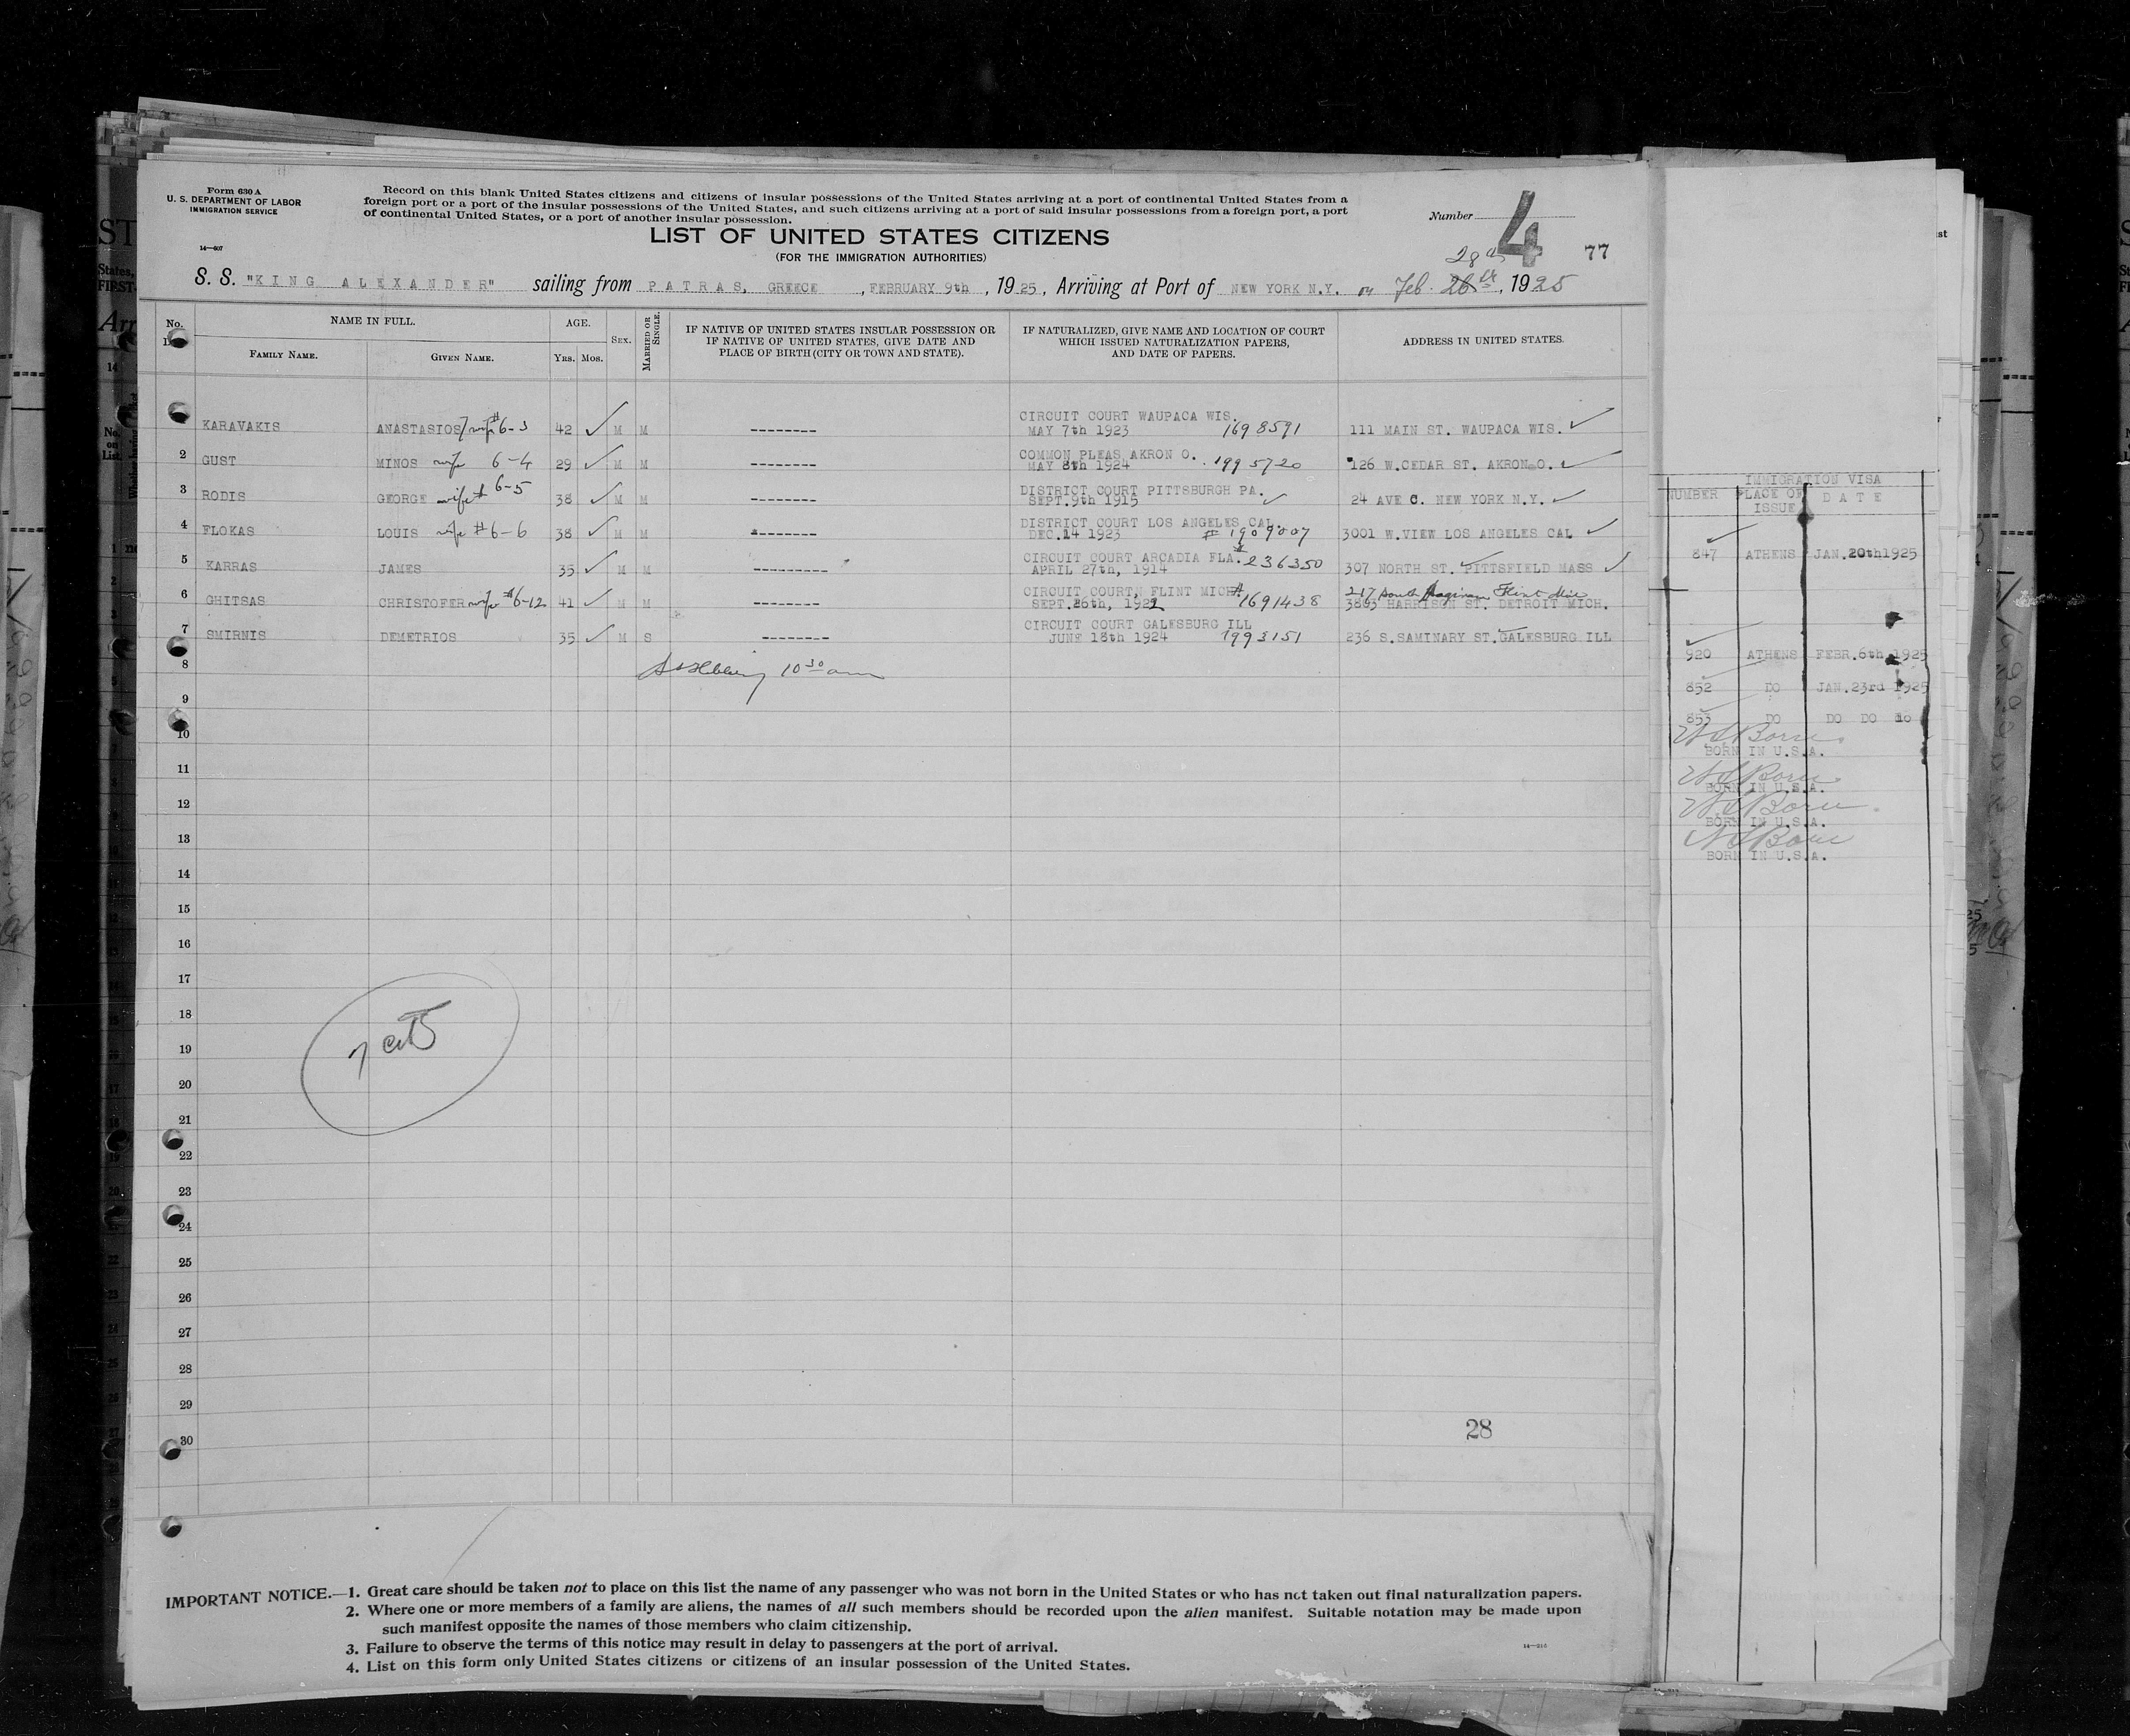 Form 630 A
U. S. DEPARTMENT OF LABOR
IMMIGRATION SERVICE
14—607
Record on this blank United States citizens and citizens of insular possessions of the United States arriving at a port of continental United States from a
foreign port or a port of the insular possessions of the United States, and such citizens arriving at a port of said insular possessions from a foreign port, a port
of continental United States, or a port of another insular possession.
Number 4
77
LIST OF UNITED STATES CITIZENS
(FOR THE IMMIGRATION AUTHORITIES)
28th
S. S. "KING ALEXANDER" sailing from PATRAS, GREECE, FEBRUARY 9th, 1925, Arriving at Port of NEW YORK N.Y. on Feb. 26th, 1925
No.
NAME IN FULL.
FAMILY NAME. GIVEN NAME.
AGE.
YRS. MOS.
SEX.
MARRIED OR SINGLE.
IF NATIVE OF UNITED STATES INSULAR POSSESSION OR
IF NATIVE OF UNITED STATES, GIVE DATE AND
PLACE OF BIRTH (CITY OR TOWN AND STATE).
IF NATURALIZED, GIVE NAME AND LOCATION OF COURT
WHICH ISSUED NATURALIZATION PAPERS,
AND DATE OF PAPERS.
ADDRESS IN UNITED STATES.
CIRCUIT COURT WAUPACA WIS.
KARAVAKIS ANASTASIOS/ wife #6-3 42 ✓ M M -------- MAY 7th 1923 1698591 111 MAIN ST. WAUPACA WIS. ✓
COMMON PLEAS AKRON O.
2 GUST MINOS wife 6-4 29 ✓ M M -------- MAY 8th 1924 1995720 126 W.CEDAR ST. AKRON O. ✓
DISTRICT COURT PITTSBURGH PA.
3 RODIS GEORGE wife # 6-5 38 ✓ M M -------- SEPT.9th 1915 ✓ 24 AVE C. NEW YORK N.Y. ✓
DISTRICT COURT LOS ANGELES CAL.
4 FLOKAS LOUIS wife #6-6 38 ✓ M M -------- DEC.14 1923 # 1909007 3001 W.VIEW LOS ANGELES CAL ✓
CIRCUIT COURT ARCADIA FLA. # 236350
5 KARRAS JAMES 35 ✓ M M -------- APRIL 27th, 1914 307 NORTH ST. PITTSFIELD MASS ✓
CIRCUIT COURT, FLINT MICH # 217 South Flint Mic
6 GHITSAS CHRISTOFER wife #6-12 41 ✓ M M -------- SEPT.26th, 1922 1691438 3893 HARRISON ST. DETROIT MICH.
CIRCUIT COURT GALESBURG ILL
7 SMIRNIS DEMETRIOS 35 ✓ M S -------- JUNE 18th 1924 1993151 236 S.SAMINARY ST. GALESBURG ILL
8 10 30 am
9
10
11
12
13
14
15
16
17
18
7 cit
19
20
21
22
23
24
25
26
27
28
29
28
30
IMMIGRATION VISA
NUMBER PLACE OF ISSUE DATE
847 ATHENS JAN.20th1925
920 ATHENS FEBR.6th 1925
852 DO JAN.23rd 1925
853 DO DO DO do
US Born
BORN IN U.S.A.
US Born
BORN IN U.S.A.
US Born
BORN IN U.S.A.
US Born
BORN IN U.S.A.
IMPORTANT NOTICE.—1. Great care should be taken not to place on this list the name of any passenger who was not born in the United States or who has not taken out final naturalization papers.
2. Where one or more members of a family are aliens, the names of all such members should be recorded upon the alien manifest. Suitable notation may be made upon
such manifest opposite the names of those members who claim citizenship.
3. Failure to observe the terms of this notice may result in delay to passengers at the port of arrival.
4. List on this form only United States citizens or citizens of an insular possession of the United States.